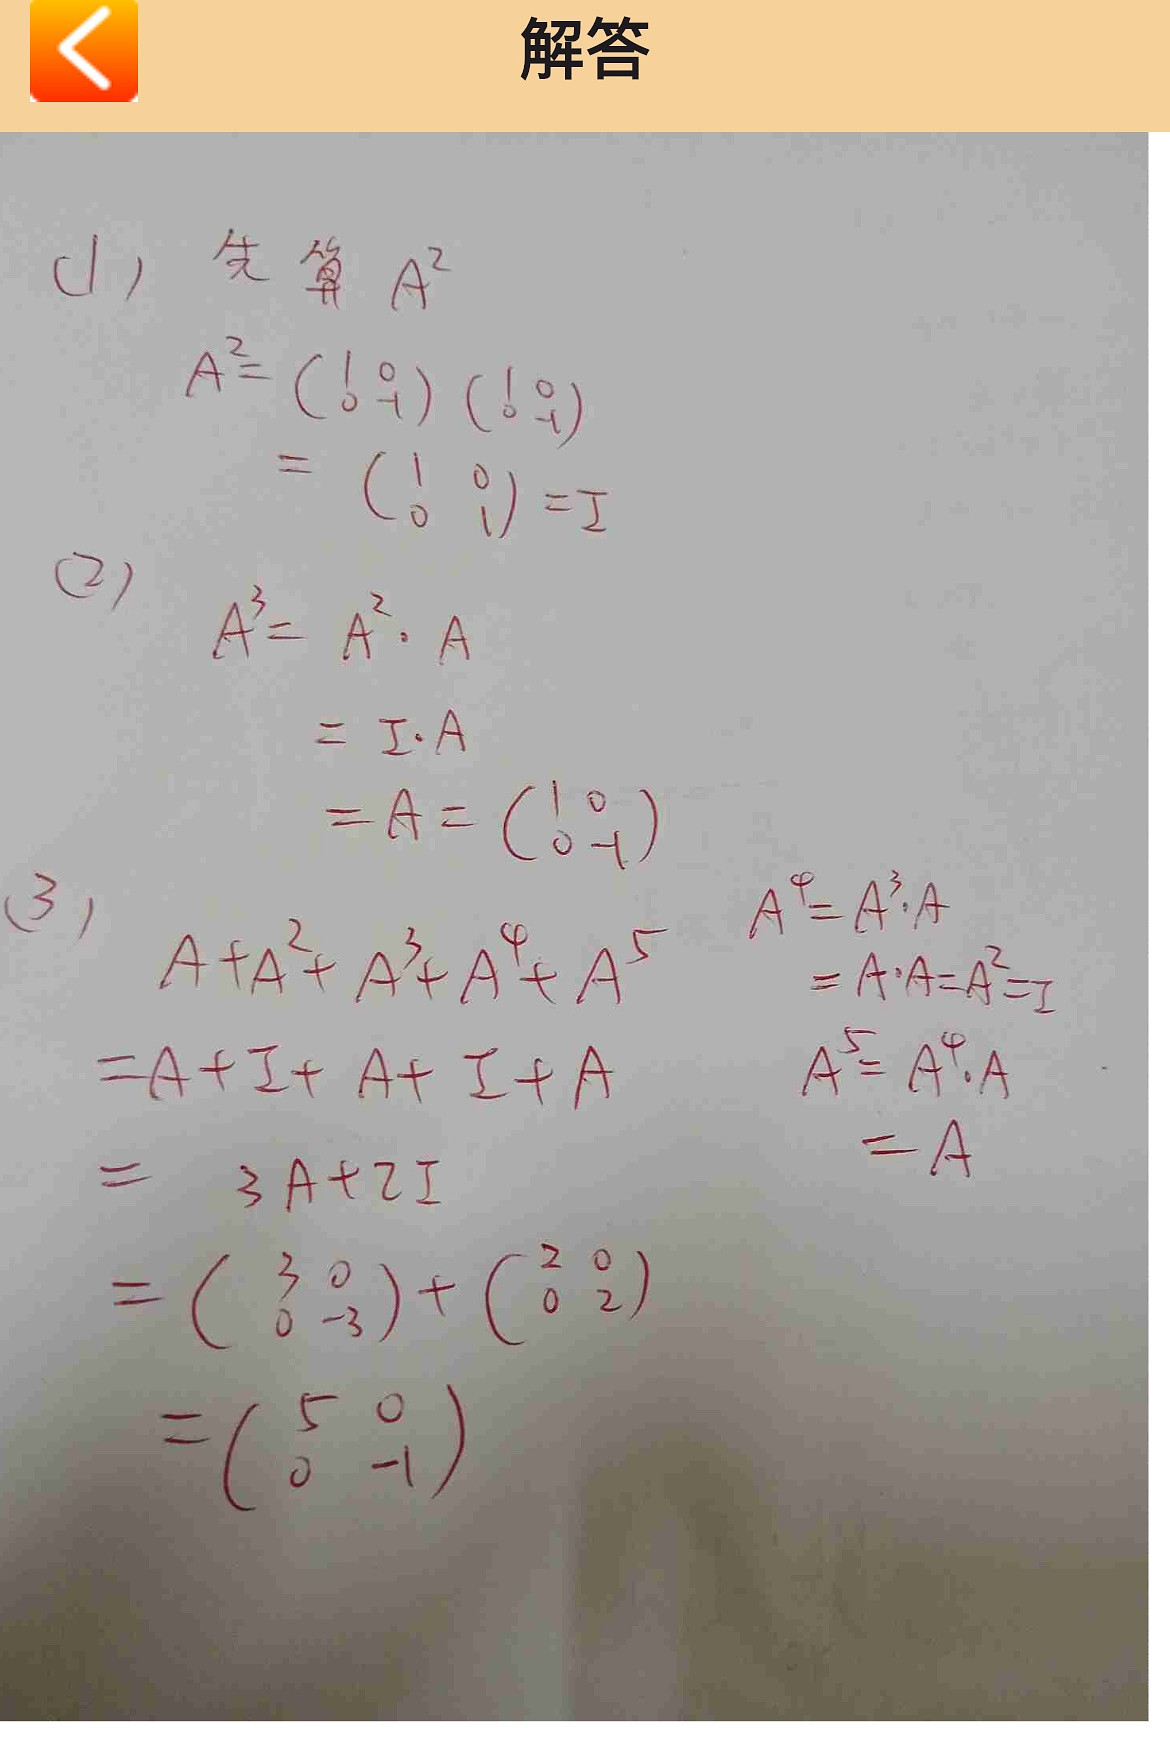 解答
(1) 先算 A²
A² = (1 0
0 -1) (1 0
0 -1)
= (1 0
0 1) = I
(2)
A³ = A²·A
= I·A
= A = (1 0
0 -1)
(3)
A+A²+A³+A⁴+A⁵
=A+I+A+I+A
= 3A+2I
= (3 0
0 -3) + (2 0
0 2)
= (5 0
0 -1)
A⁴=A³·A
=A·A=A²=I
A⁵=A⁴·A
=A